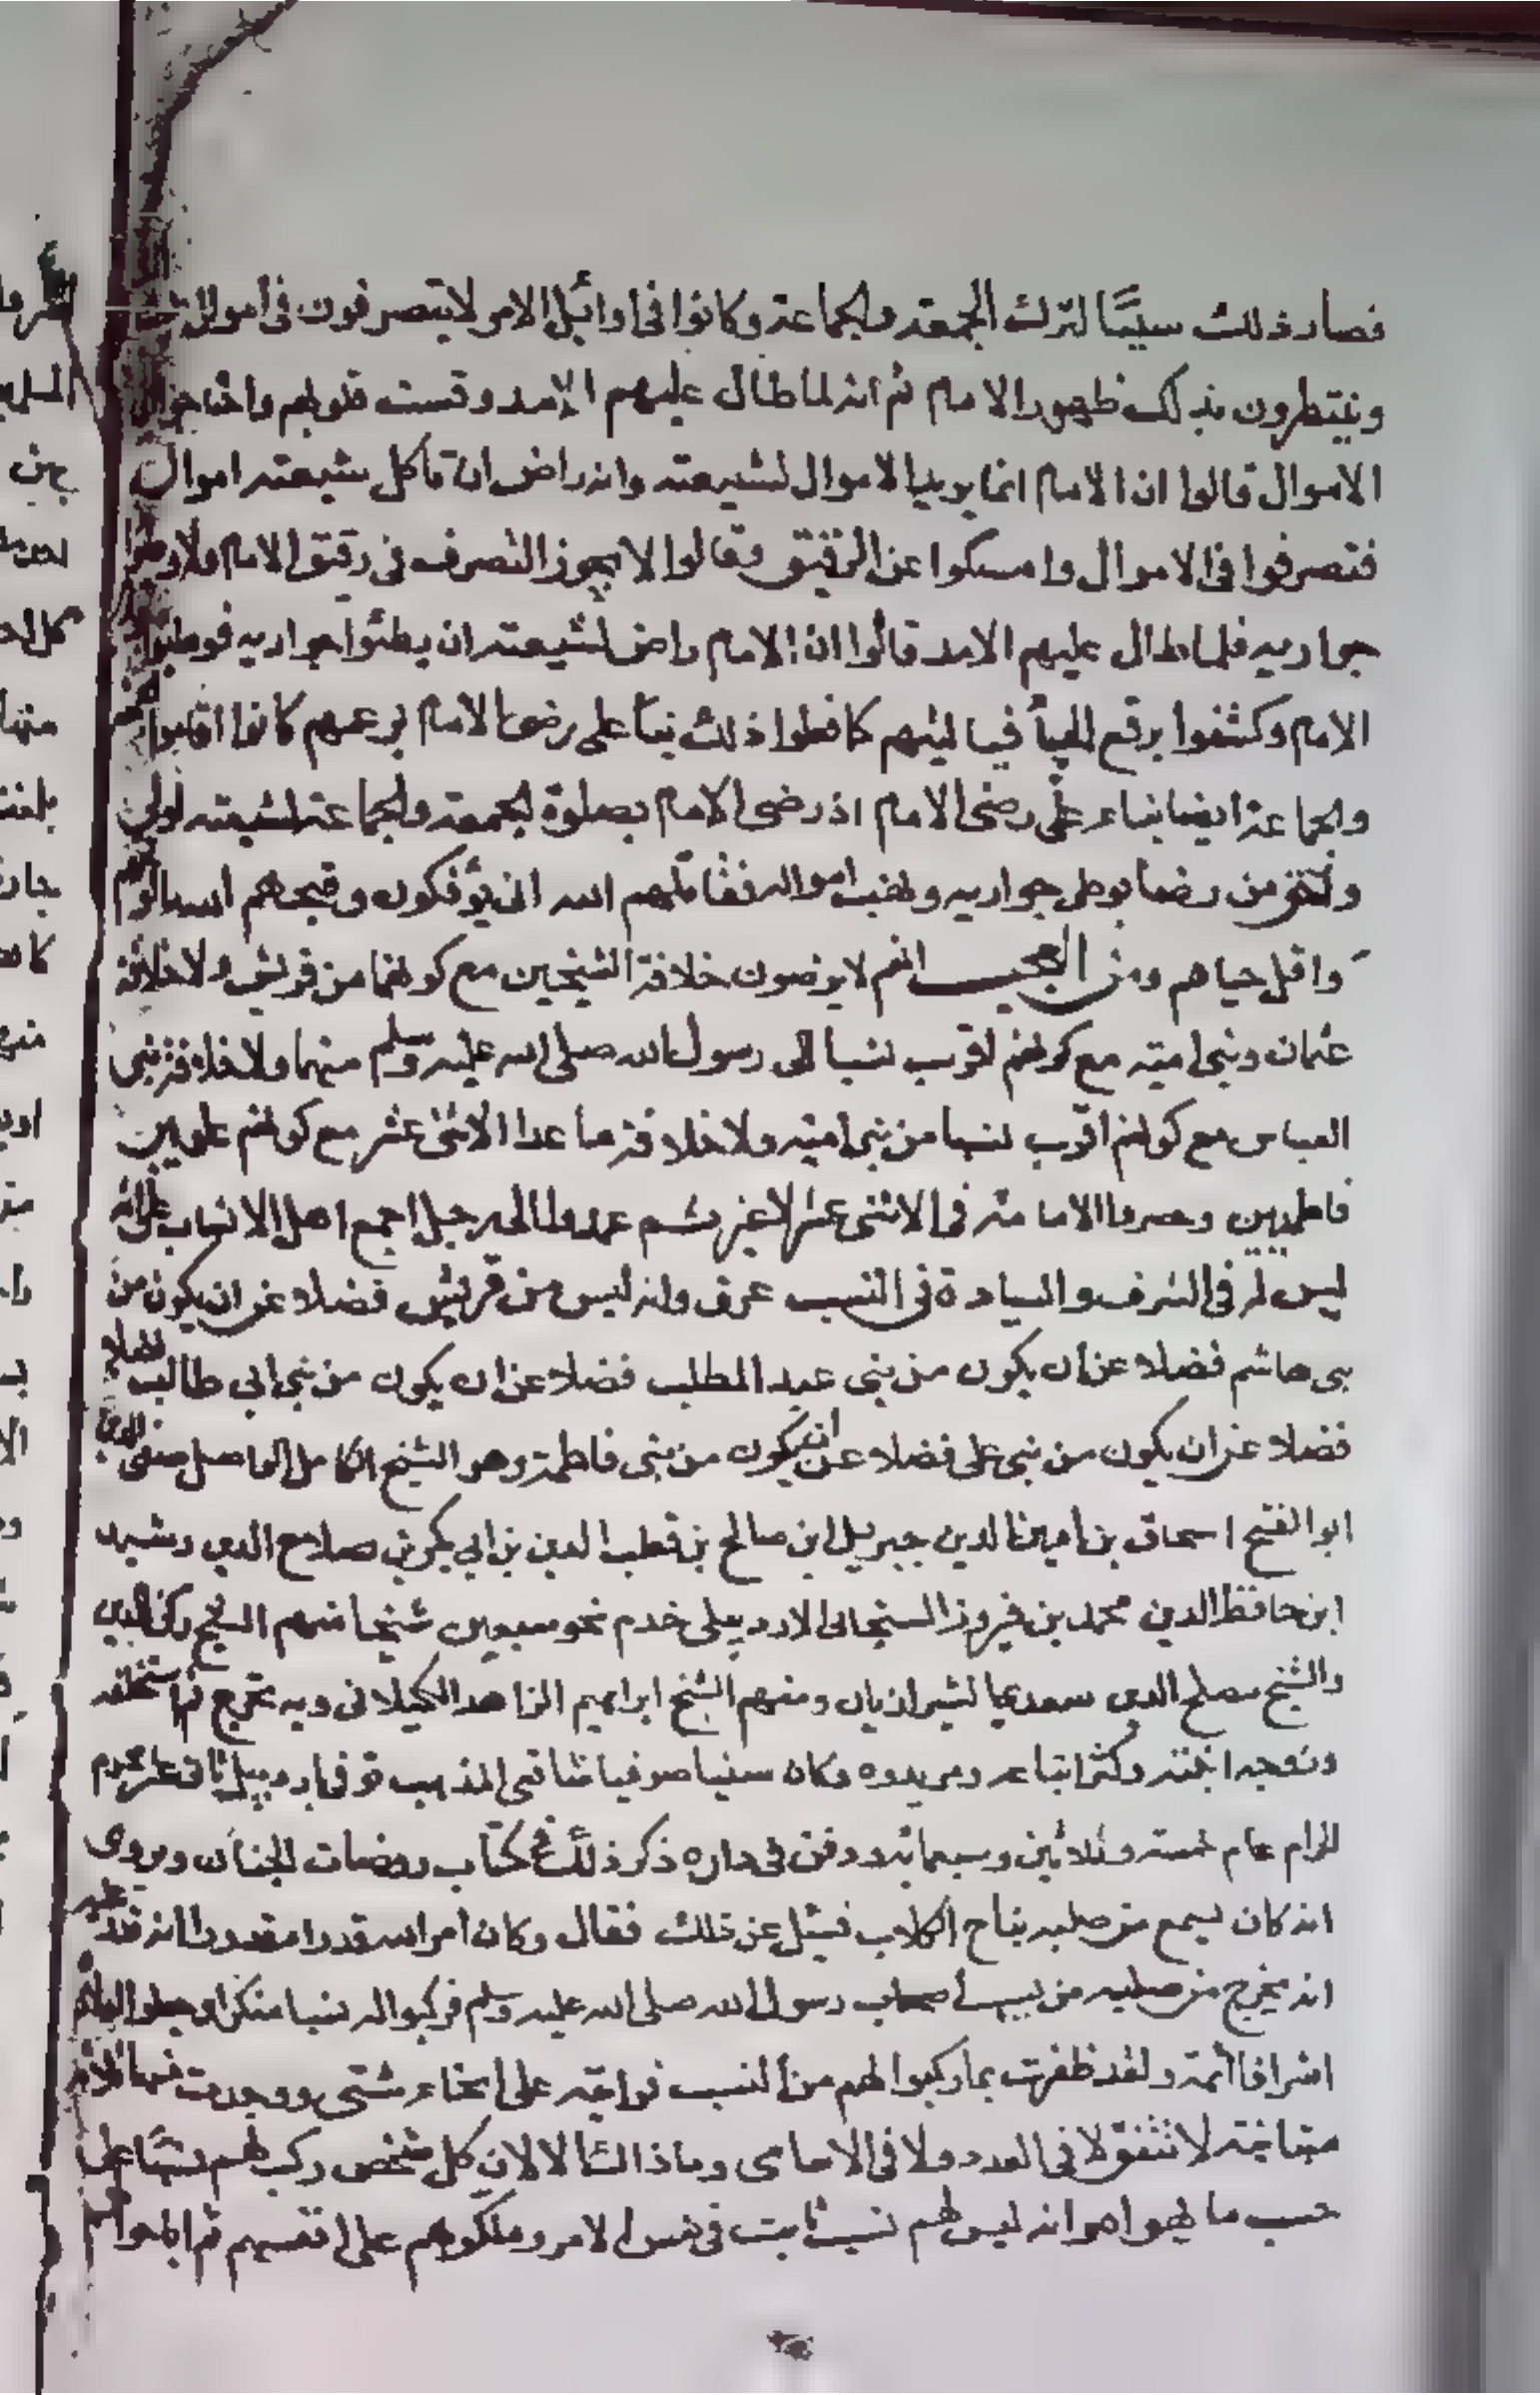 فصار ذلك سببًا لترك الجمعة والجماعة وكانوا فى اوائل الامر لا يتصرفون فى اموال
وينتظرون بذلك ظهور الامام ثم انه لما طال عليهم الامد وقست قلوبهم واحتاجوا
الاموال قالوا ان الامام انما يريد الاموال لشيعته وانه راض ان تاكل شيعته اموال
فتصرفوا فى الاموال وامسكوا عن الرقيق وقالوا لا يجوز التصرف فى رقيق الامام ولا
جواريه فلما طال عليهم الامد قالوا ان الامام راض لشيعته ان يطئوا جواريه فوطئوا
الامام وكشفوا برقع الحيأ فيا ليتهم كما فعلوا ذلك بنأ على رضى الامام بزعمهم كانوا اقاموا
والجماعة ايضا بناء على رضى الامام اذ رضى الامام بصلوة الجمعة والجماعة لشيعته اولى
من رضاه بوطى جواريه ونهب امواله فقاتلهم الله انى يؤفكون وقبحهم الله
واقل حياهم ومن العجب انهم لا يرضون خلافة الشيخين مع كونهما من قريش ولا خلافة
عثمان وبنى امية مع كونهم اقرب نسبا الى رسول الله صلى الله عليه وسلم منهما ولا خلافة بنى
العباس مع كونهم اقرب نسبا من بنى امية ولا خلافة ما عدا الاثنى عشر مع كونهم علويين
فاطميين وحصروا الامامة فى الاثنى عشر لا غير ثم عمدوا الى رجل اجمع اهل الانساب على انه
ليس له فى الشرف والسيادة فى النسب عرق وانه ليس من قريش فضلا عن ان يكون من
بنى هاشم فضلا عن ان يكون من بنى عبد المطلب فضلا عن ان يكون من بنى ابى طالب فضلا
فضلا عن ان يكون من بنى على فضلا عن ان يكون من بنى فاطمة وهو الشيخ الكامل الواصل صفى الدين
ابو الفتح اسحاق بن امين الدين جبريل ابن صالح بن قطب الدين بن ابى بكر بن صلاح الدين رشيد
ابن حافظ الدين محمد بن فيروز السنجانى الاردبيلى خدم نحو سبعين شيخا منهم الشيخ ركن الدين
والشيخ مصلح الدين سعدى الشيرازيان ومنهم الشيخ ابراهيم الزاهد الكيلانى وبه تخرج ثم استخلفه
وزوجه ابنته وكثر اتباعه ومريدوه وكان سنيا صوفيا شافعى المذهب توفى باردبيل ثانى عشر محرم
الحرام عام خمسة وثلاثين وسبعمائة ودفن فى داره ذكر ذلك فى كتاب روضات الجنان ويروى
انه كان يسمع من صلبه نباح الكلاب فسئل عن ذلك فقال وكان امر الله قدرا مقدورا انه قدر عليه
انه يخرج من صلبه من يسب أصحاب رسول الله صلى الله عليه وسلم فركبوا له نسبا منكرا وجعلوا
اشرافا أئمة ولقد ظفرت بما ركبوا لهم من النسب فرايته على انحاء شتى ووجدت فيها
متباينة لا تتفق لا فى العدد ولا فى الاسامى وما ذاك الا لان كل شخص ركب لهم نسبًا على
حسب ما يهواه وانه ليس لهم نسب ثابت فى نفس الامر وملكوهم على انفسهم ثم اباحوا